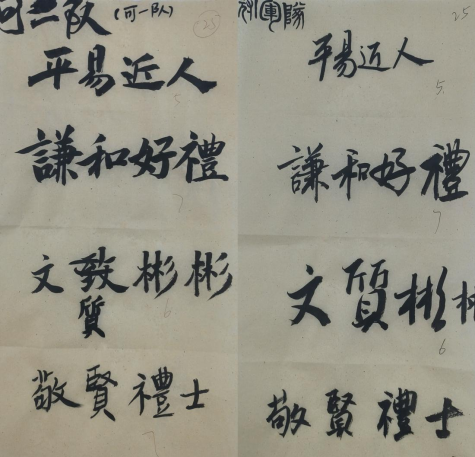 可一队 (可一队) 25
平易近人
5
謙和好禮
7
文致彬彬
質 6
敬賢禮士
7
科團隊 25
平易近人
5
謙和好禮
7
文質彬彬
6
敬賢禮士